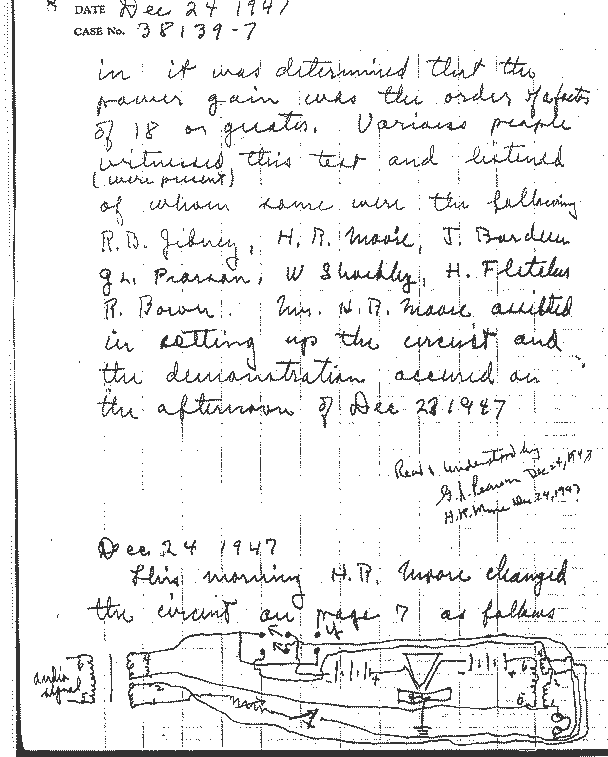 8 DATE Dec 24 1947
CASE No. 38139-7
in it was determined that the
power gain was the order of a factor
of 18 or greater. Various people
witnessed this test and listened
(were present)
of whom some were the following
R.B. Gibney, H.R. Moore, J. Bardeen
G.L. Pearson, W Shockley, H. Fletcher
R. Bown. Mr. H.R. Moore assisted
in setting up the circuit and
the demonstration occured on
the afternoon of Dec 23 1947
Read & understood by
G.L. Pearson Dec 24, 1947
H.R. Moore Dec 24, 1947
Dec 24 1947
This morning H.R. Moore changed
the circuit on page 7 as follows
audio
signal